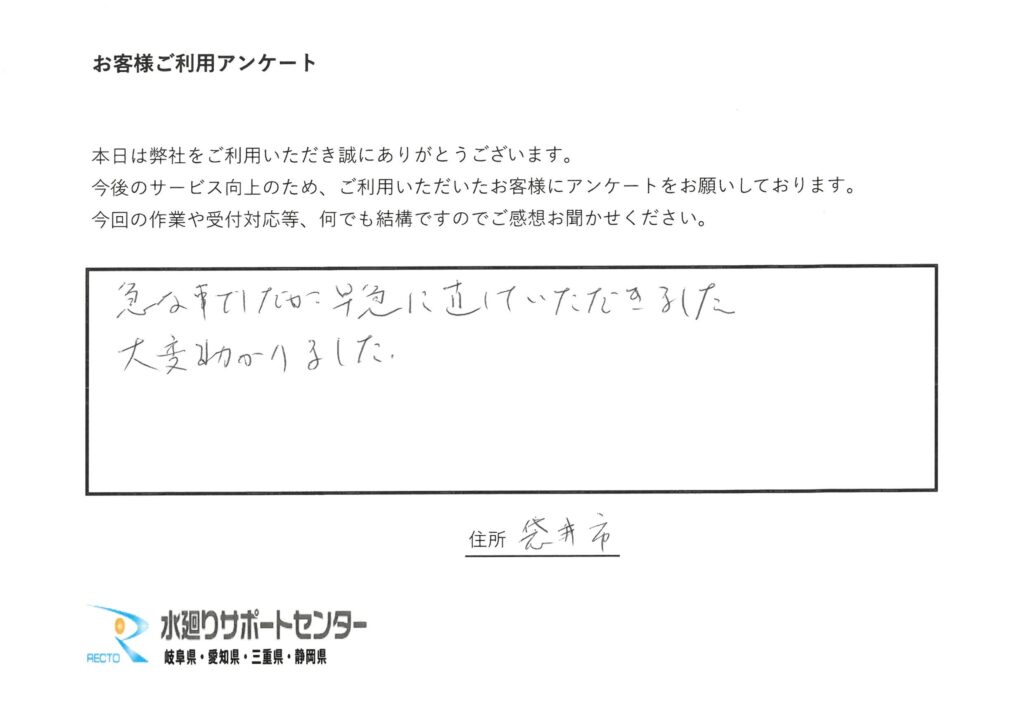 お客様ご利用アンケート
本日は弊社をご利用いただき誠にありがとうございます。
今後のサービス向上のため、ご利用いただいたお客様にアンケートをお願いしております。
今回の作業や受付対応等、何でも結構ですのでご感想お聞かせください。
急な事でしたが早急に直していただきました
大変助かりました.
住所 袋井市
RECTO
水廻りサポートセンター
岐阜県・愛知県・三重県・静岡県